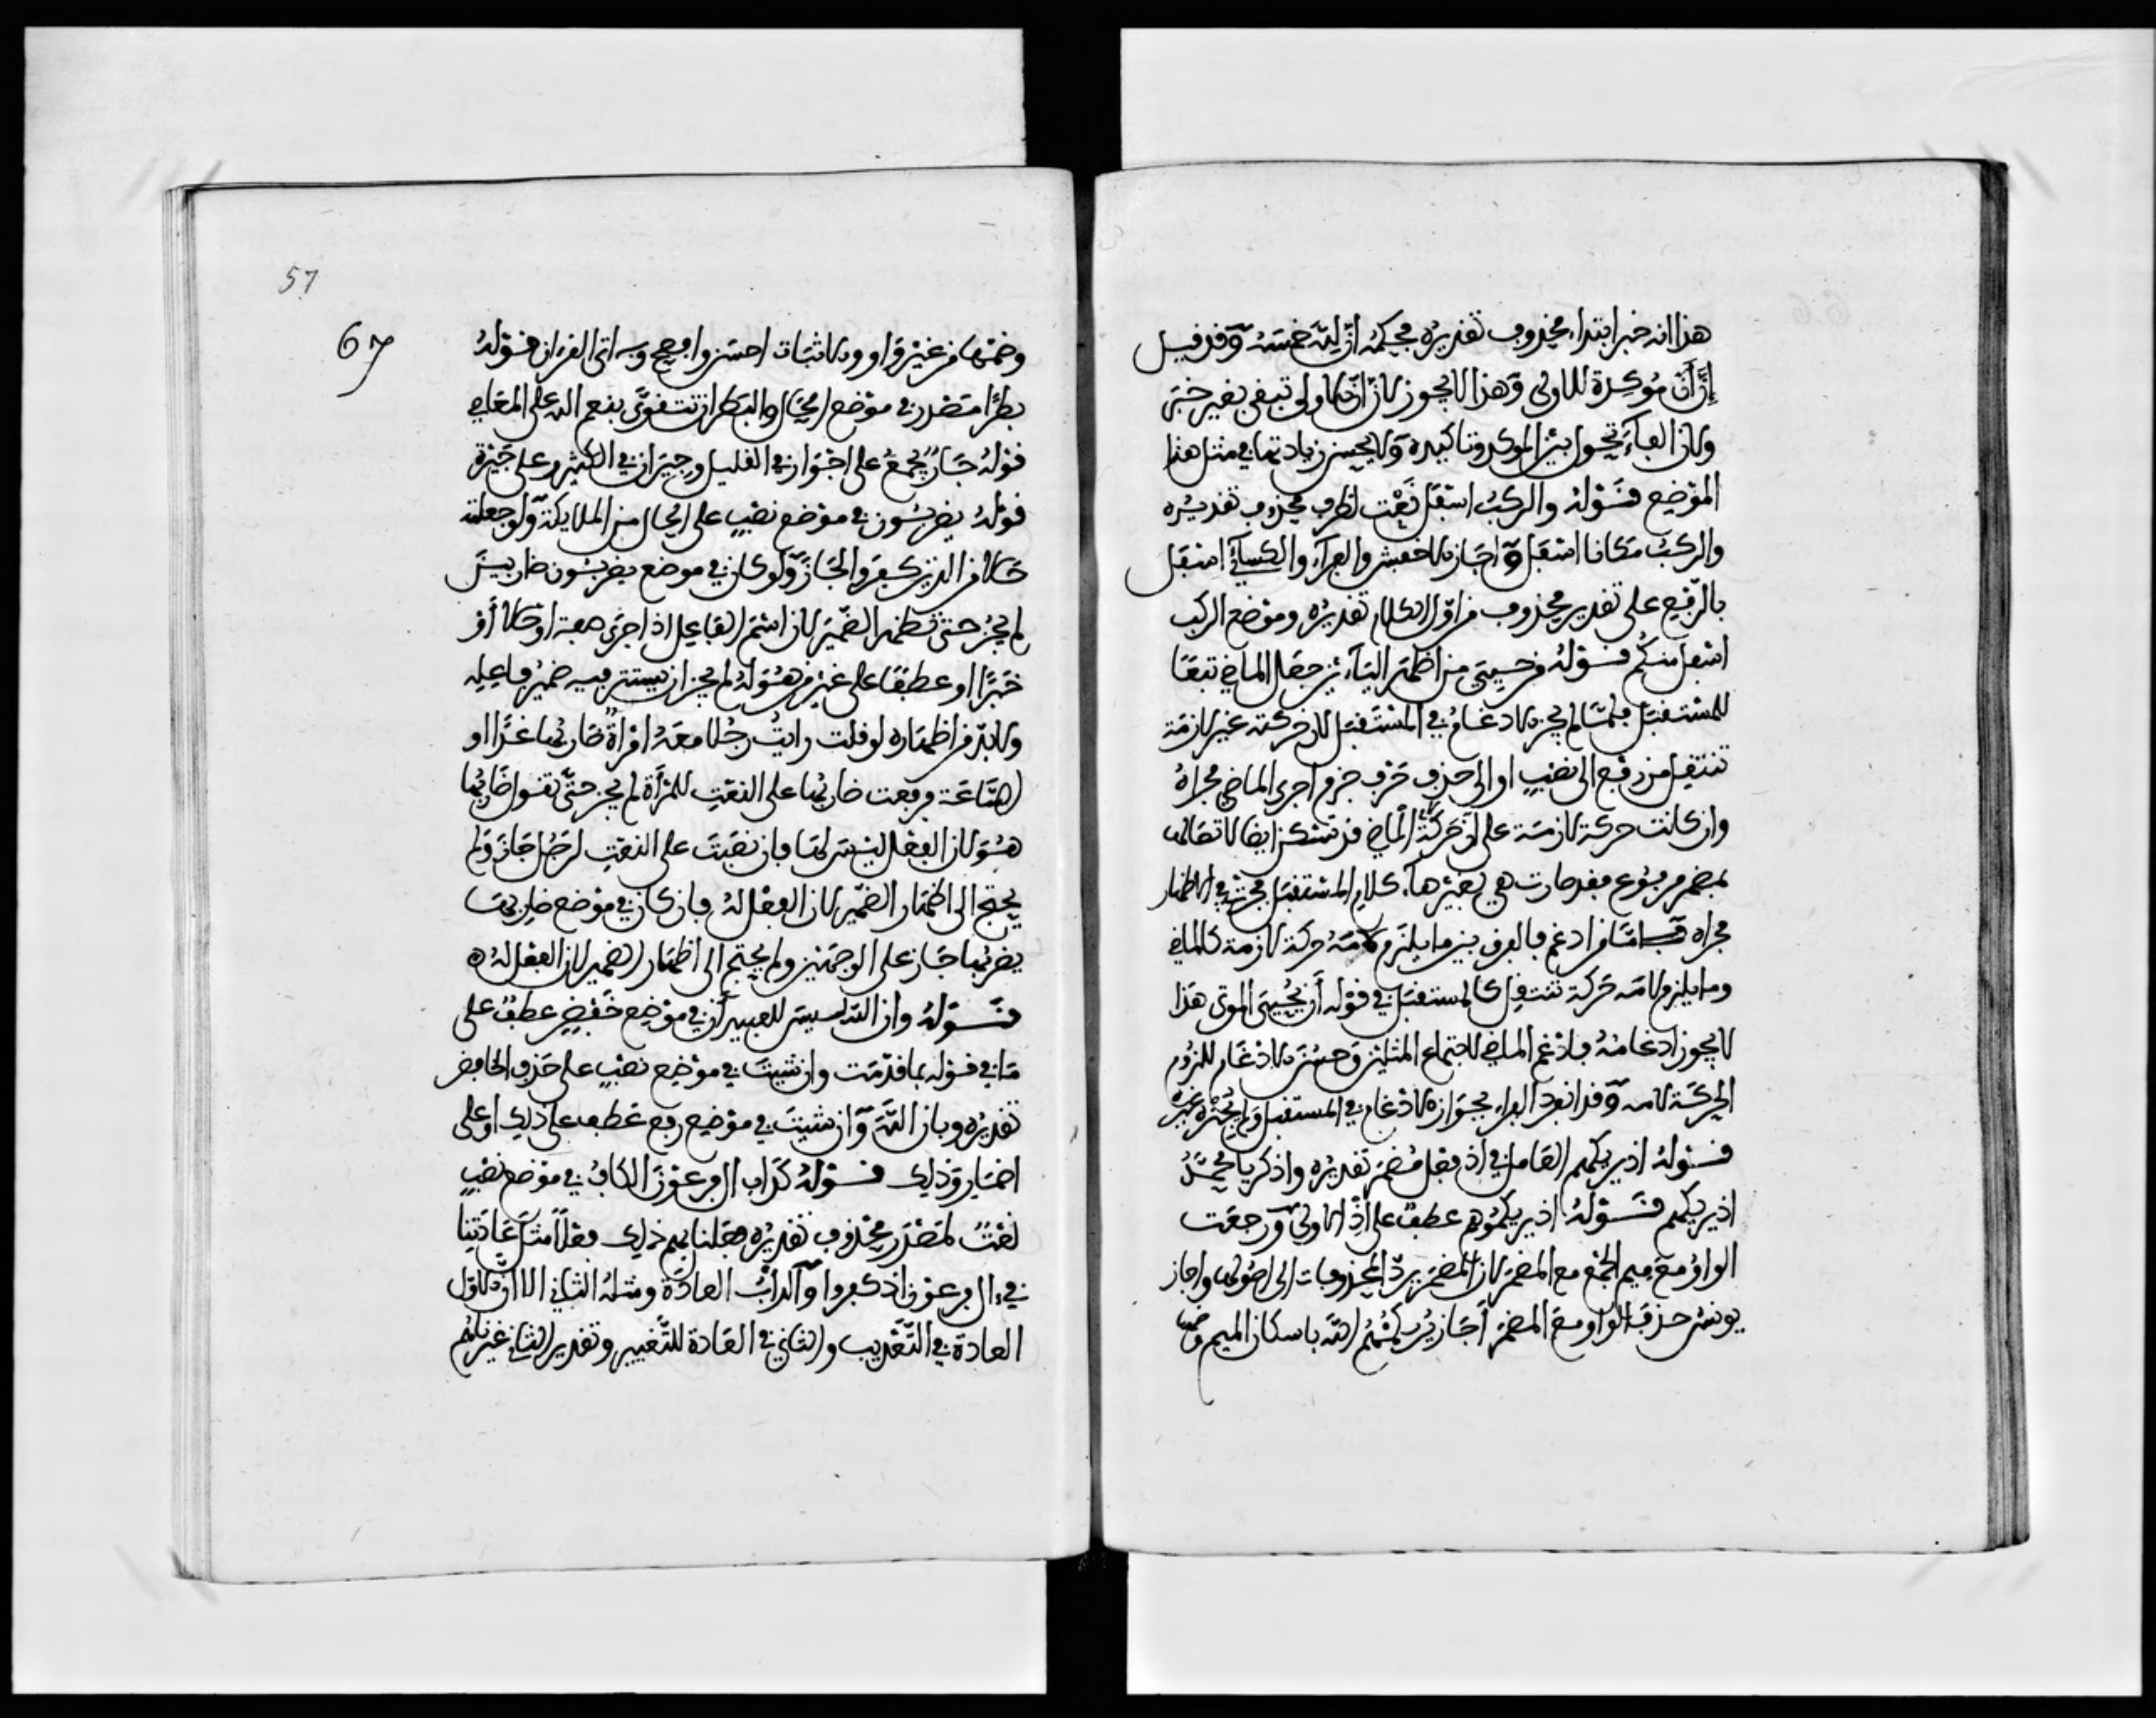 هذا انه خبر ابتداء محذوف تقديره فحكمه ان لله خمسه وقد قيل
إن أن مؤكدة للاولى وهذا لا يجوز لان ان الاولى تبقى بغير خبر
ولان الفاء تحول بين الموكد وتاكيده ولا يحسن زيادتها في مثل هذا
الموضع قوله والركب اسفل نعت لظرف محذوف تقديره
والركب مكانا اسفل واجاز الاخفش والفراء والكسائي اسفل
بالرفع على تقدير محذوف من اول الكلام تقديره وموضع الركب
اسفل منكم قوله من حيي من اظهر الياءين جعل الماضي تبعا
للمستقبل فلما لم يجز الادغام في المستقبل لان حركته غير لازمة
تنتقل من رفع الى نصب او الى حذف حرف جزم اجرى الماضي مجراه
وان كانت حركة لازمة على ان حركة الماضي قد تسكن ايضا لاتصالها
بمضمر مرفوع فقد صارت هي بغيرها كلام المستقبل فجرى في الاظهار
مجراه فاما من ادغم فالفرق بين ما يلزم لامه حركة لازمة كالماضي
وما يلزم لامه حركة تنتقل كالمستقبل في قوله أن يحيي الموتى هذا
لا يجوز ادغامه فادغم الماضي لاجتماع المثلين وحسن الادغام للزوم
الحركة لامه وقد انفرد الفراء بجواز الادغام في المستقبل ولم يجزه غيره
قوله اذ يريكهم العامل في اذ فعل مضمر تقديره واذكر يا محمد
اذ يريكهم قوله اذ يريكموهم عطف على اذ الاولى ورجعت
الواو مع ميم الجمع مع المضمر لان المضمر يرد المحذوفات الى اصولها واجاز
يونس حذف الواو مع المضمر أجاز يريكمهم الله باسكان الميم وضمها
57
67
وضمها من غير واو والاثبات احسن وافصح وبه اتى القرءان قوله
بطرا مصدر في موضع الحال والبطر ان تتقوى بنعم الله على المعاصي
قوله جار يجمع على اجوار في القليل وجيران في الكثير وعلى جيرة
قوله يضربون في موضع نصب على الحال من الملايكة ولو جعلته
حالا من الذين كفروا لجاز ولو كان في موضع يضربون ضاربين
لم يجز حتى تظهر الضمير لان اسم الفاعل اذا جرى صفة او حالا أو
خبرا او عطفا على غير من هو له لم يجز ان يستتر فيه ضمير فاعله
ولا بد من اظهاره لو قلت رايت رجلا معه امرأة ضاربها غدا او
الساعة فرفعت ضاربها على النعت للمرأة لم يجز حتى تقول ضاربها
هو لان الفعل ليس لها فان نصبت على النعت لرجل جاز ولم
يحتج الى اظهار الضمير لان الفعل له فان كان في موضع ضاربها
يضربها جاز على الوجهين ولم يحتج الى اظهار الضمير لان الفعل له
قوله وان الله ليس للعبيد أن في موضع خفض عطف على
ما في قوله بما قدمت وان شيت في موضع نصب على حذف الخافض
تقديره وبان الله وان شيت في موضع رفع عطف على ذلك او على
اضمار وذلك قوله كداب ال فرعون الكاف في موضع نصب
نعت لمصدر محذوف تقديره فعلنا بهم ذلك فعلا مثل عادتنا
في ءال فرعون اذ كفروا والداب العادة ومثله الثاني الا ان الاول
العادة في التعذيب والثاني في العادة للتغيير وتقدير الثاني غيرنا بهم